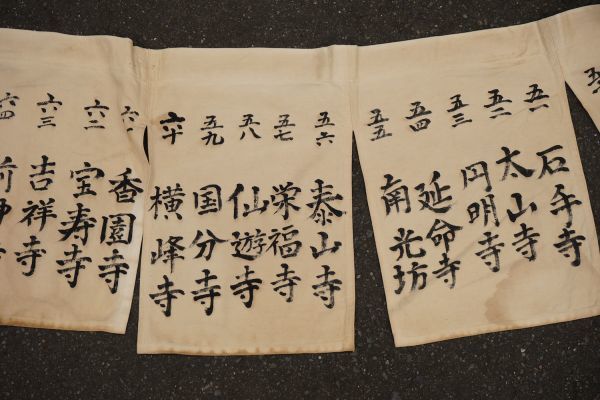 五一 石手寺
五二 太山寺
五三 円明寺
五四 延命寺
五五 南光坊
五六 泰山寺
五七 栄福寺
五八 仙遊寺
五九 国分寺
六十 横峰寺
六一 香園寺
六二 宝寿寺
六三 吉祥寺
六四